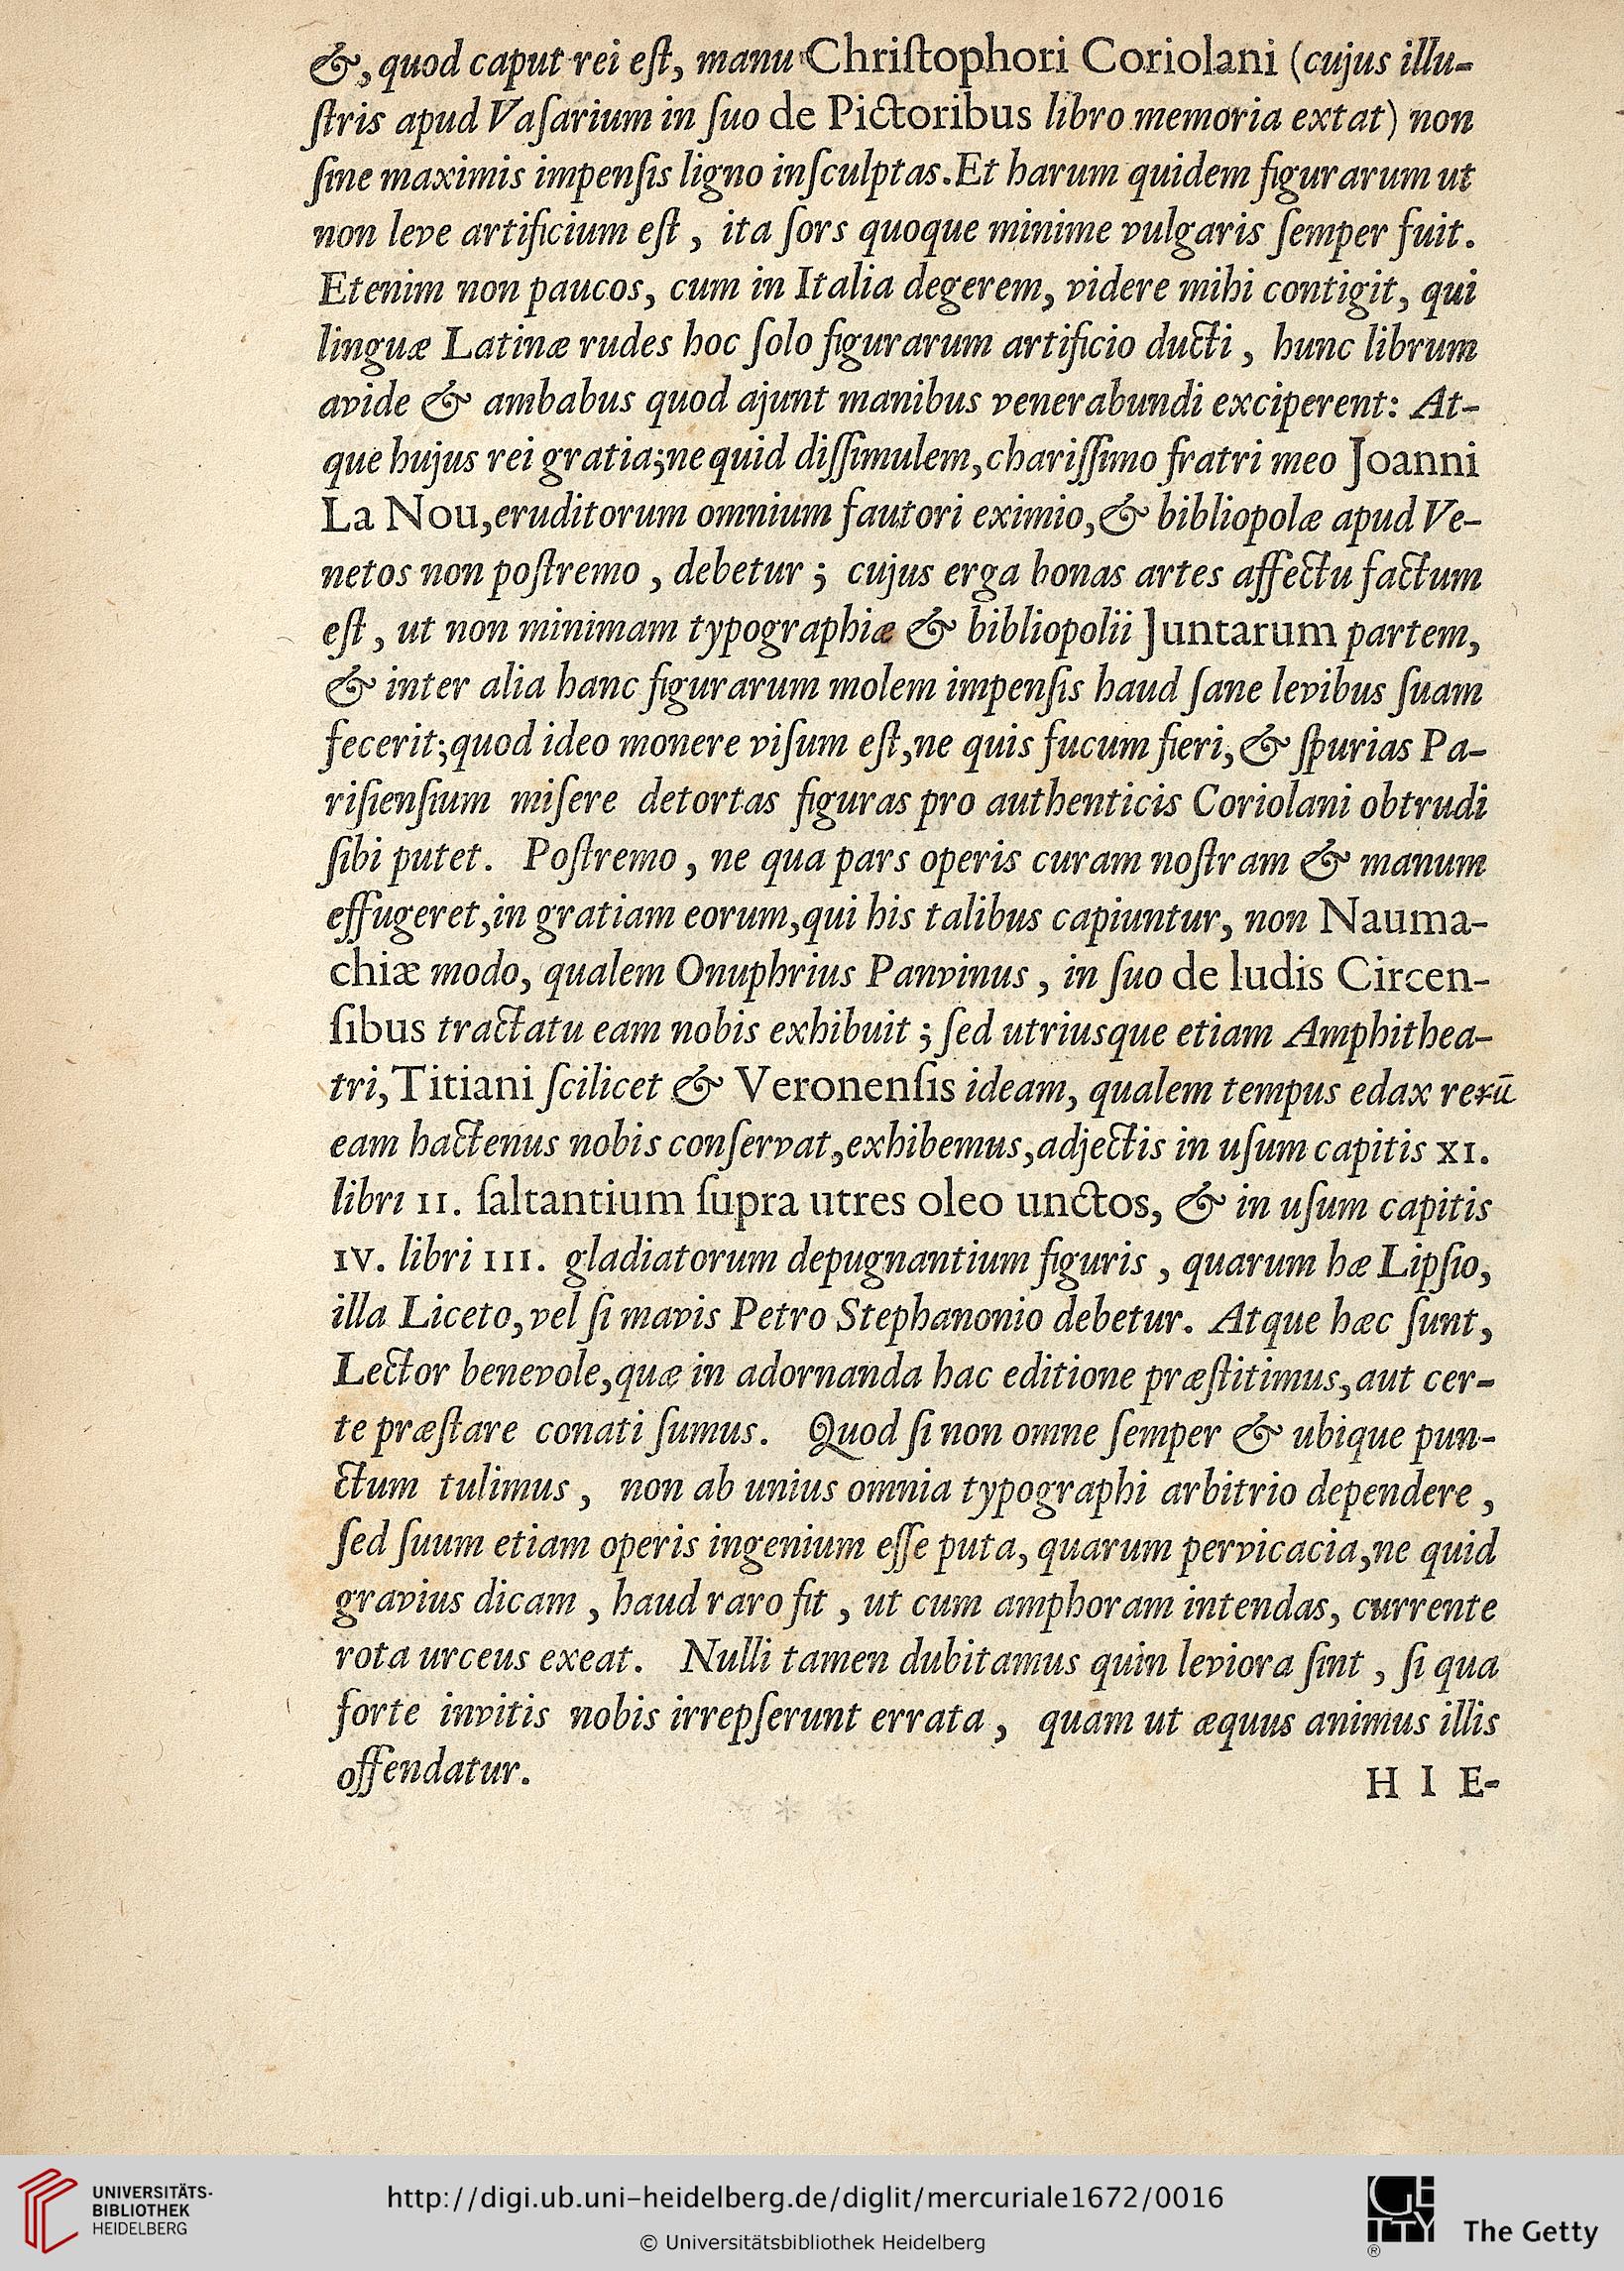 &, quod caput rei eſt, manu Chriſtophori Coriolani (cujus illu-
ſtris apud Vaſarium in ſuo de Pictoribus libro memoria extat) non
ſine maximis impenſis ligno inſculptas. Et harum quidem figurarum ut
non leve artificium eſt, ita ſors quoque minime vulgaris ſemper fuit.
Etenim non paucos, cum in Italia degerem, videre mihi contigit, qui
linguæ Latinæ rudes hoc ſolo figurarum artificio ducti, hunc librum
avide & ambabus quod ajunt manibus venerabundi exciperent: At-
que hujus rei gratia; ne quid diſſimulem, chariſſimo fratri meo Joanni
La Nou, eruditorum omnium fautori eximio, & bibliopolæ apud Ve-
netos non poſtremo, debetur; cujus erga bonas artes affectu factum
eſt, ut non minimam typographiæ & bibliopolii Juntarum partem,
& inter alia hanc figurarum molem impenſis haud ſane levibus ſuam
fecerit; quod ideo monere viſum eſt, ne quis fucum fieri, & ſpurias Pa-
riſienſium miſere detortas figuras pro authenticis Coriolani obtrudi
ſibi putet. Poſtremo, ne qua pars operis curam noſtram & manum
effugeret, in gratiam eorum, qui his talibus capiuntur, non Nauma-
chiæ modo, qualem Onuphrius Panvinus, in ſuo de ludis Circen-
ſibus tractatu eam nobis exhibuit; ſed utriusque etiam Amphithea-
tri, Titiani ſcilicet & Veronenſis ideam, qualem tempus edax rerū
eam hactenus nobis conſervat, exhibemus, adjectis in uſum capitis XI.
libri II. ſaltantium ſupra utres oleo unctos, & in uſum capitis
IV. libri III. gladiatorum depugnantium figuris, quarum hæ Lipſio,
illa Liceto, vel ſi mavis Petro Stephanonio debetur. Atque hæc ſunt,
Lector benevole, quæ in adornanda hac editione præſtitimus, aut cer-
te præſtare conati ſumus. Quod ſi non omne ſemper & ubique pun-
ctum tulimus, non ab unius omnia typographi arbitrio dependere,
ſed ſuum etiam operis ingenium eſſe puta, quarum pervicacia, ne quid
gravius dicam, haud raro fit, ut cum amphoram intendas, currente
rota urceus exeat. Nulli tamen dubitamus quin leviora ſint, ſi qua
forte invitis nobis irrepſerunt errata, quam ut æquus animus illis
offendatur.
HIE-
UNIVERSITÄTS-
BIBLIOTHEK
HEIDELBERG
http://digi.ub.uni-heidelberg.de/diglit/mercuriale1672/0016
© Universitätsbibliothek Heidelberg
GETTY
®
The Getty